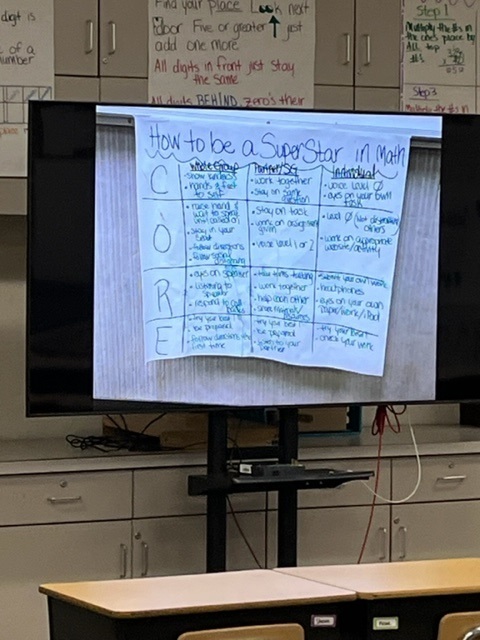 digit is
of a
number
Find your place Look next
door Five or greater just
add one more
All digits in front just stay
the same
All digits BEHIND, zero's their
Step 1
Multiply the #s in
the one's place by
All top
#s
Step 3
How to be a SuperStar in Math
Whole Group
Partner/SG
Individual
C
show kindness
hands & feet
to self
work together
stay on same
question
voice level 0
eyes on your own
task
O
raise hand &
wait to speak
stay in your
seat
follow directions
stay on task
work on assignment
given
voice level 1 or 2
level 0 (not disturbing
others
work on appropriate
website/activity
R
eyes on speaker
listening to
speaker
respond to call
backs
take turns talking
work together
help each other
work
headphones
eyes on your own
paper/work/iPad
E
try your best
be prepared
follow directions the
first time
try your best
be prepared
listen to your
partner
try your best
check your work